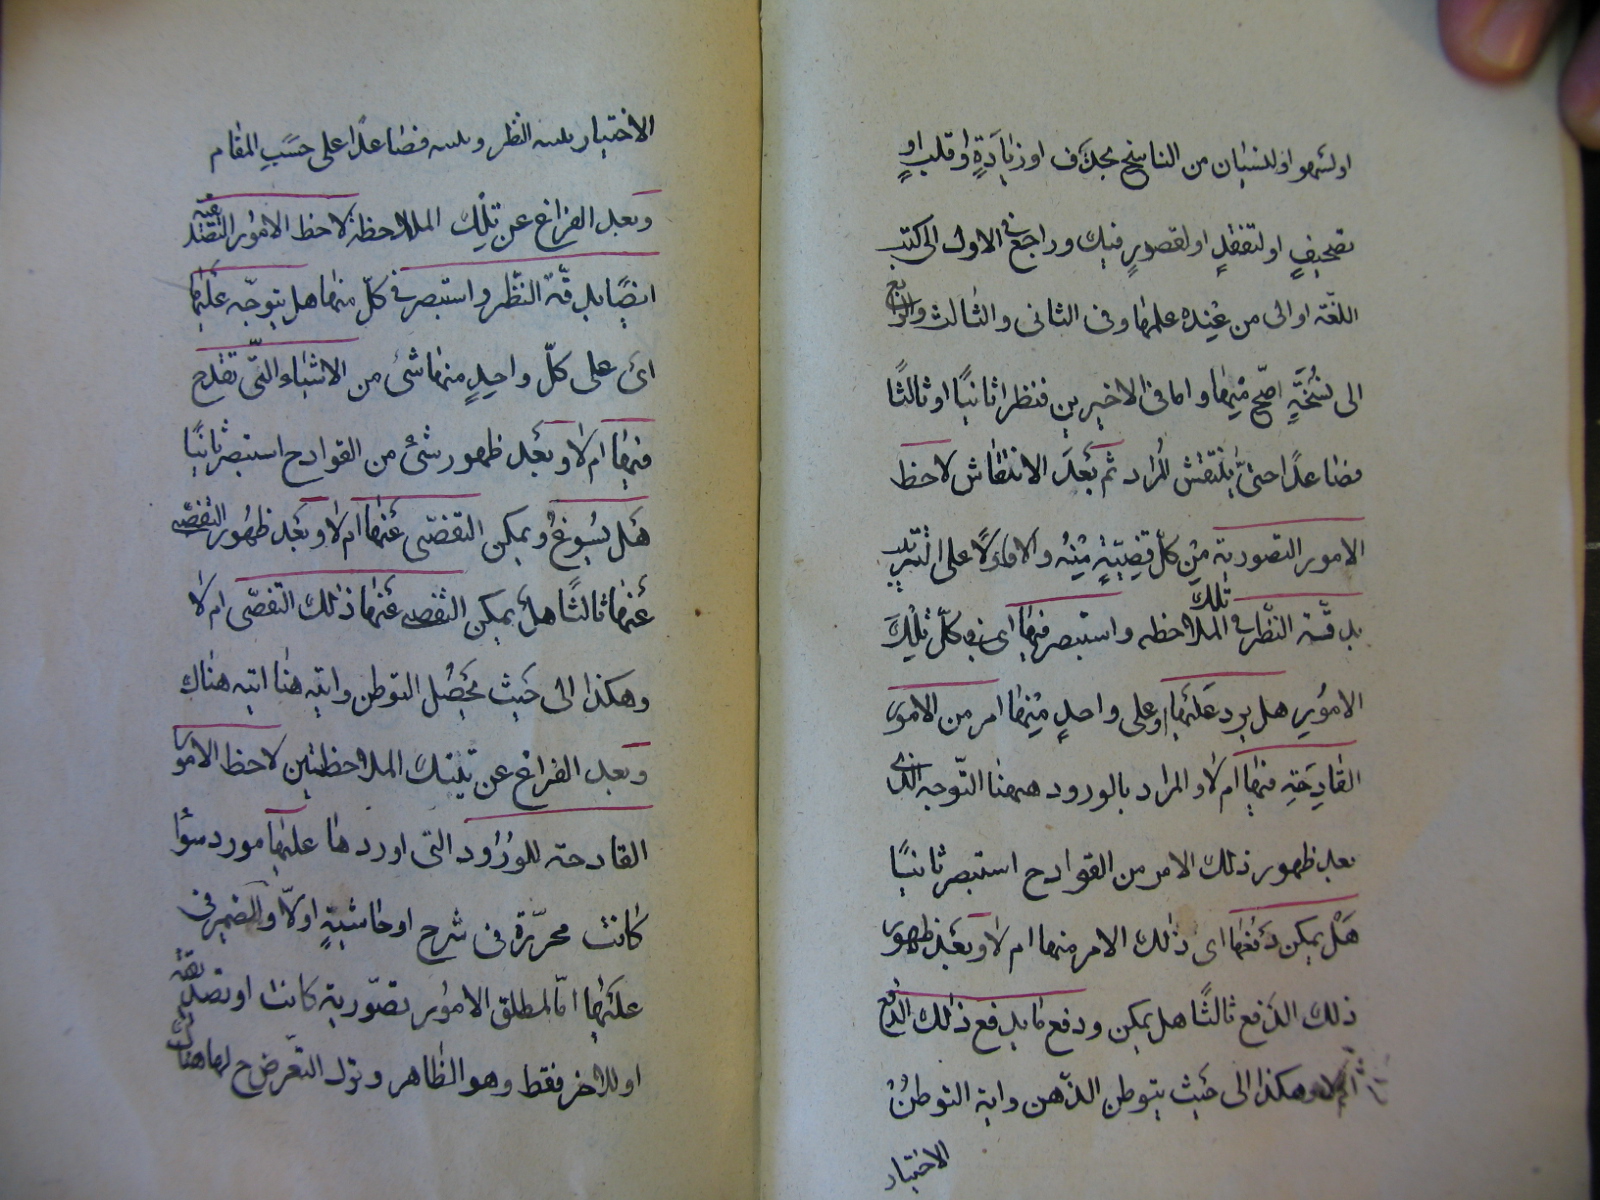 او لسهو او لنسيان من الناسخ بحذف او زيادةٍ او قلبٍ او
تصحيفٍ او لتعقيدٍ او لقصورٍ فيك وراجع في الاول الى كتب
اللغة او الى من عنده علمها وفى الثانى والثالث والرابع
الى نسخةٍ اصحّ منها واما فى الاخيرين فنظرا ثانيًا او ثالثًا
فصاعدًا حتىّ ينتقش المراد ثم بعدَ الانتقاش لاحظ
الامور التصورية من كلّ قضيّةٍ منه والا فاولًا على الترتيب
بدقّة النّظر فى تلك الملاحظه واستبصر فيها اى فى كلّ تلك
الامورِ هل يرد عليَها او على واحدٍ منها امر من الامور
القادِحَةِ فيها ام لا والمراد بالورود ههنا التّوجه الذى
بعد ظهور ذلك الامر من القوادح استبصر ثانيًا
هَلْ يمكن دَفعُها اى ذلك الامر منها ام لا وبعْد ظهور
ذلك الدّفع ثالثًا هل يمكن ودفع ما يدفع ذلك الدفع
ام لا وهكذا الى حَيث يتوطن الذّهن واية التوطنُ
الاختيار
الاختيار النظر فصاعدًا على حسَبِ المقام
وبعد الفراغ عن تلِك الملاحظة لاحظ الامُور التصديقيّة
ايضًا بدقّة النظر واستبصر فى كلّ منها هل يتوجّه عليها
اىْ على كلّ واحدٍ منها شئ من الاشياء التّى تقدح
فيها ام لا وبعْد ظهور شئ من القوادح استبصر ثانيًا
هَل يسُوغُ ويمكن التفصّى عَنها ام لا وبعْد ظهُور التفصّى
عَنها ثالثًا هل يمكن التفصى عَنها ذلك التفصّى ام لا
وهكذا الى حَيث يَحصُل التوطن وايته هنا ايته هناك
وبعد الفراغ عن تينك الملاحظتين لاحظ الامور
القادحة للوُرُود التى اوردها عليها مورد سوا
كانت محرّرة فى شرح او حاشيةٍ اولا والضمير فى
عليَها امّا لمطلق الامُور تصوّرية كانت او تصديقيّة
او للاخر فقط وهو الظاهر وترك التعرّض ح لها هناك